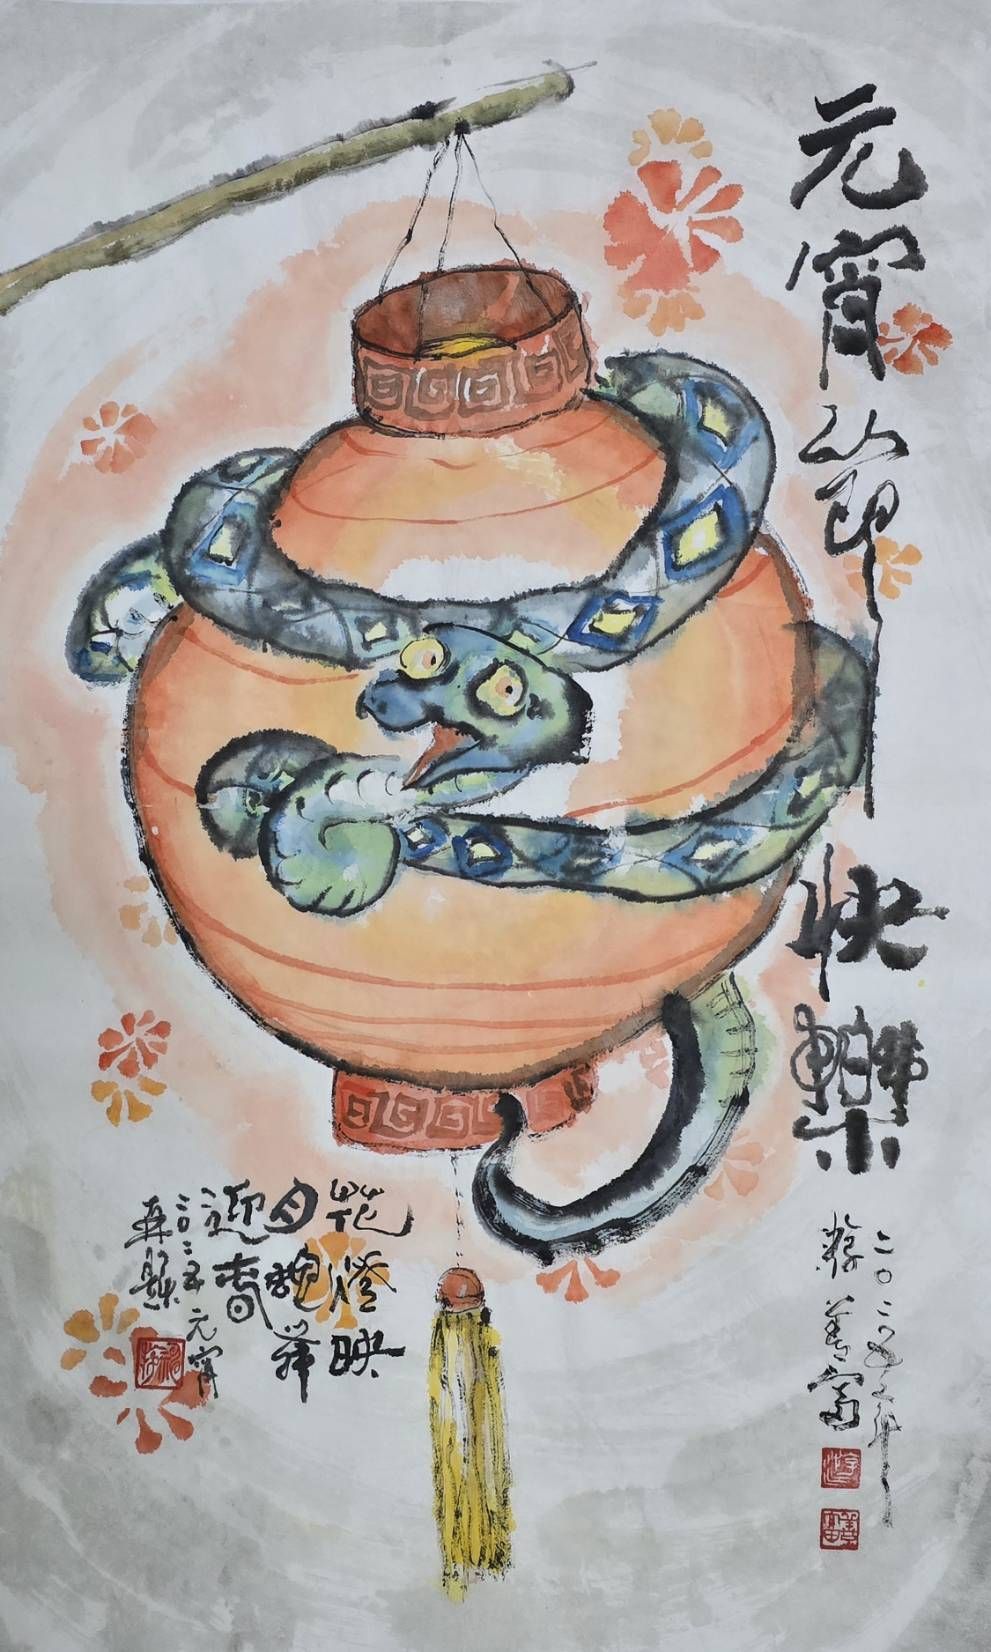 元宵節快樂
二〇二五年
善富
花燈映
月舞
迎春
二〇二五元宵